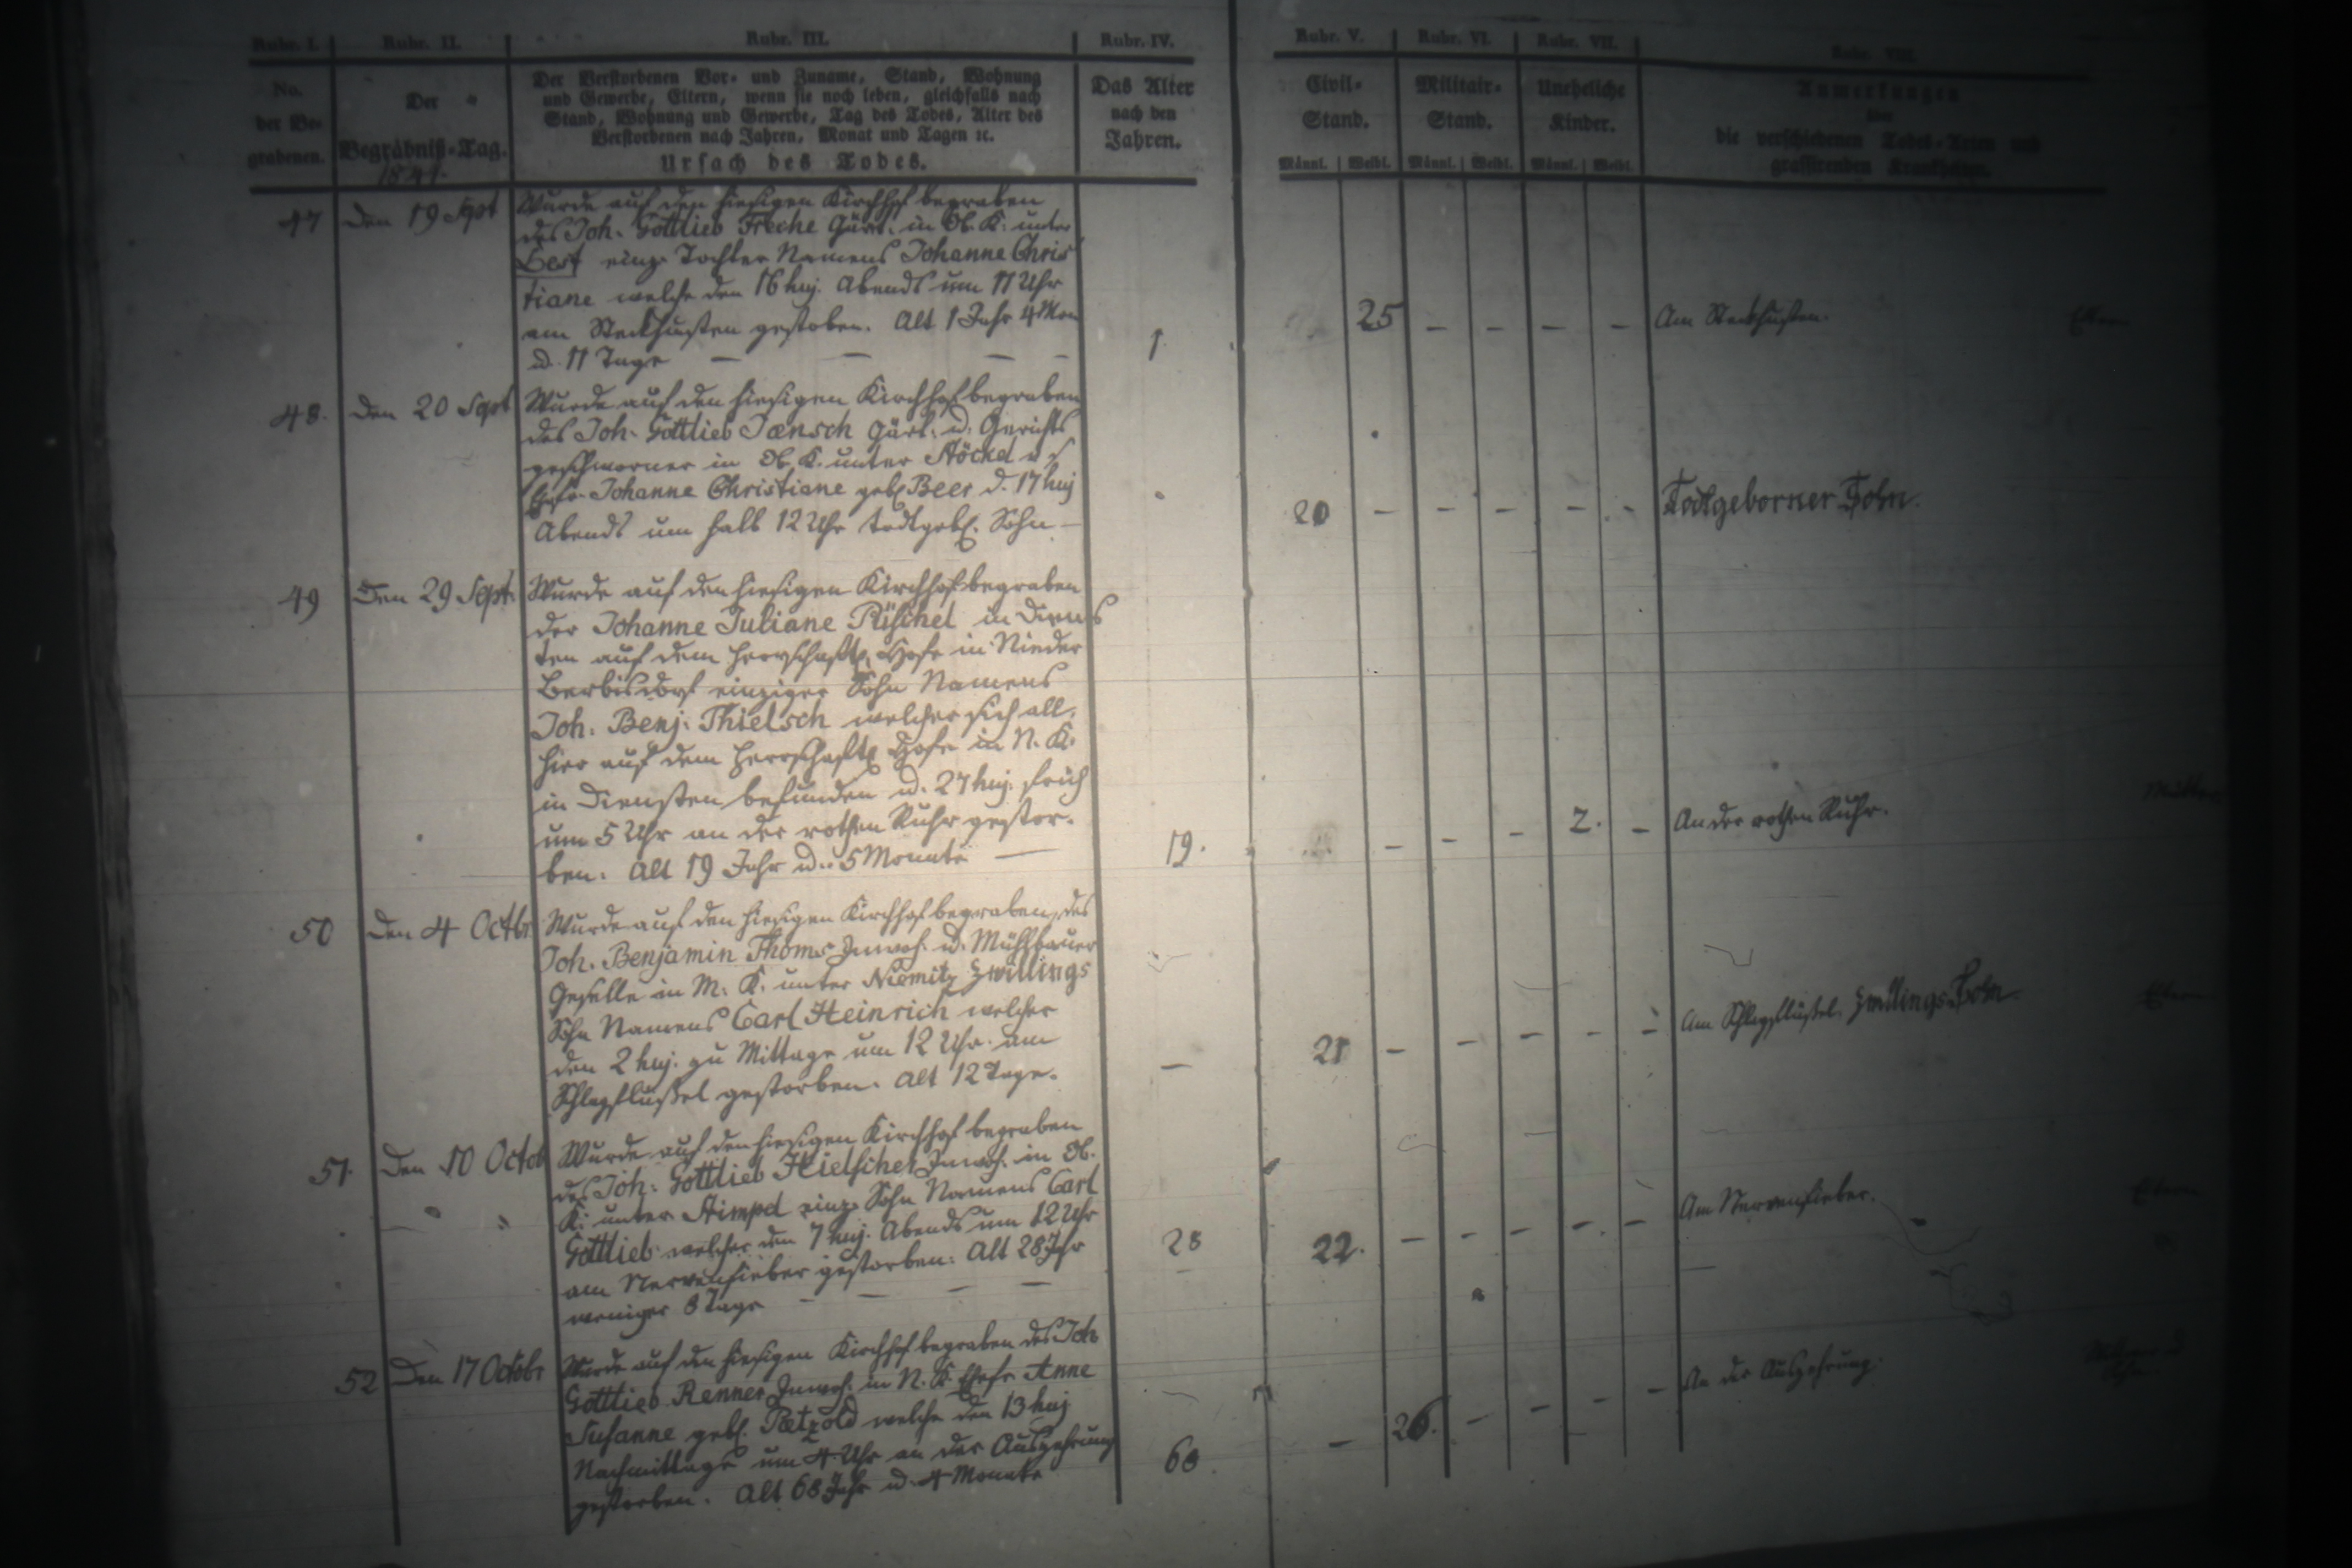 Rubr. I. Rubr. II. Rubr. III. Rubr. IV. Rubr. V. Rubr. VI. Rubr. VII. Rubr. VIII.
No.
der Be-
grabenen.
Der
Begräbniß-Tag.
1841.
Der Verstorbenen Vor- und Zuname, Stand, Wohnung
und Gewerbe, Eltern, wenn sie noch leben, gleichfalls nach
Stand, Wohnung und Gewerbe, Tag des Todes, Alter des
Verstorbenen nach Jahren, Monat und Tagen ꝛc.
Ursach des Todes.
Das Alter
nach den
Jahren.
Civil-
Stand.
Männl. Weibl.
Militair-
Stand.
Männl. Weibl.
Uneheliche
Kinder.
Männl. Weibl.
Anmerkungen
über
die verschiedenen Todes-Arten und
grassirenden Krankheiten.
47 Den 19 Sept
Wurde auf den hiesigen Kirchhof begraben
des Joh. Gottlieb Freche Gärt. in Ob. K. unter
einz. Tochter Namens Johanne Chris
tiane welche den 16 huj. Abends um 11 Uhr
am Steckhusten gestoben. Alt 1 Jahr 4 Mon
u. 11 Tage — — — —
1.
25 – – – –
Am Steckhusten.
Eltern
48. Den 20 Sept
Wurde auf den hiesigen Kirchhof begraben
des Joh. Gottlieb Jænsch Gärt. u. Gerichts
geschworner in Ob. K. unter
Ehefr. Johanne Christiane geb. Beer d. 17 huj
Abends um halb 12 Uhr todtgeb. Sohn —
20 – – – – –
Todtgeborner Sohn.
49 Den 29 Sept.
Wurde auf den hiesigen Kirchhof begraben
der Johanne Juliane Püschel in Diens
ten auf dem herrschaftl. Hofe in Nieder
Berbisdorf einziger Sohn Namens
Joh. Benj. Thielsch welcher sich all.
hier auf dem herrschaftl. Hofe in N. K.
in Diensten befunden u. 27 huj. früh
um 5 Uhr an der rothen Ruhr gestor.
ben. Alt 19 Jahr u. 5 Monate —
19.
– – – 2. –
An der rothen Ruhr.
Mutter
50 Den 4 Octbr
Wurde auf den hiesigen Kirchhof begraben, des
Joh. Benjamin Thoms Inwoh. u. Mühlbauer
Geselle in M. K. unter Niemitz Zwillings
Sohn Namens Carl Heinrich welcher
den 2 huj. zu Mittage um 12 Uhr am
Schlagflussel gestorben. Alt 12 Tage.
—
21 – – – – –
Am Schlagflussel. Zwillings Sohn.
Eltern
51. Den 10 Octob
Wurde auf den hiesigen Kirchhof begraben
des Joh. Gottlieb Hielscher Inwoh. in Ob.
K. unter einz. Sohn Namens Carl
Gottlieb welcher den 7 huj. Abends um 12 Uhr
am Nervenfieber gestorben. Alt 28 Jahr
weniger 8 Tage — — — —
28
22. – – – – –
Am Nervenfieber.
Eltern
52 Den 17 Octobr
Wurde auf den hiesigen Kirchhof begraben des Joh
Gottlieb Renner Inwoh. in N. K. Ehefr. Anne
Susanne geb. Pætzold welche den 13 huj
Nachmittags um 4 Uhr an der Auszehrung
gestorben. Alt 68 Jahr u. 4 Monate
68.
– 26. – – – –
An der Auszehrung.